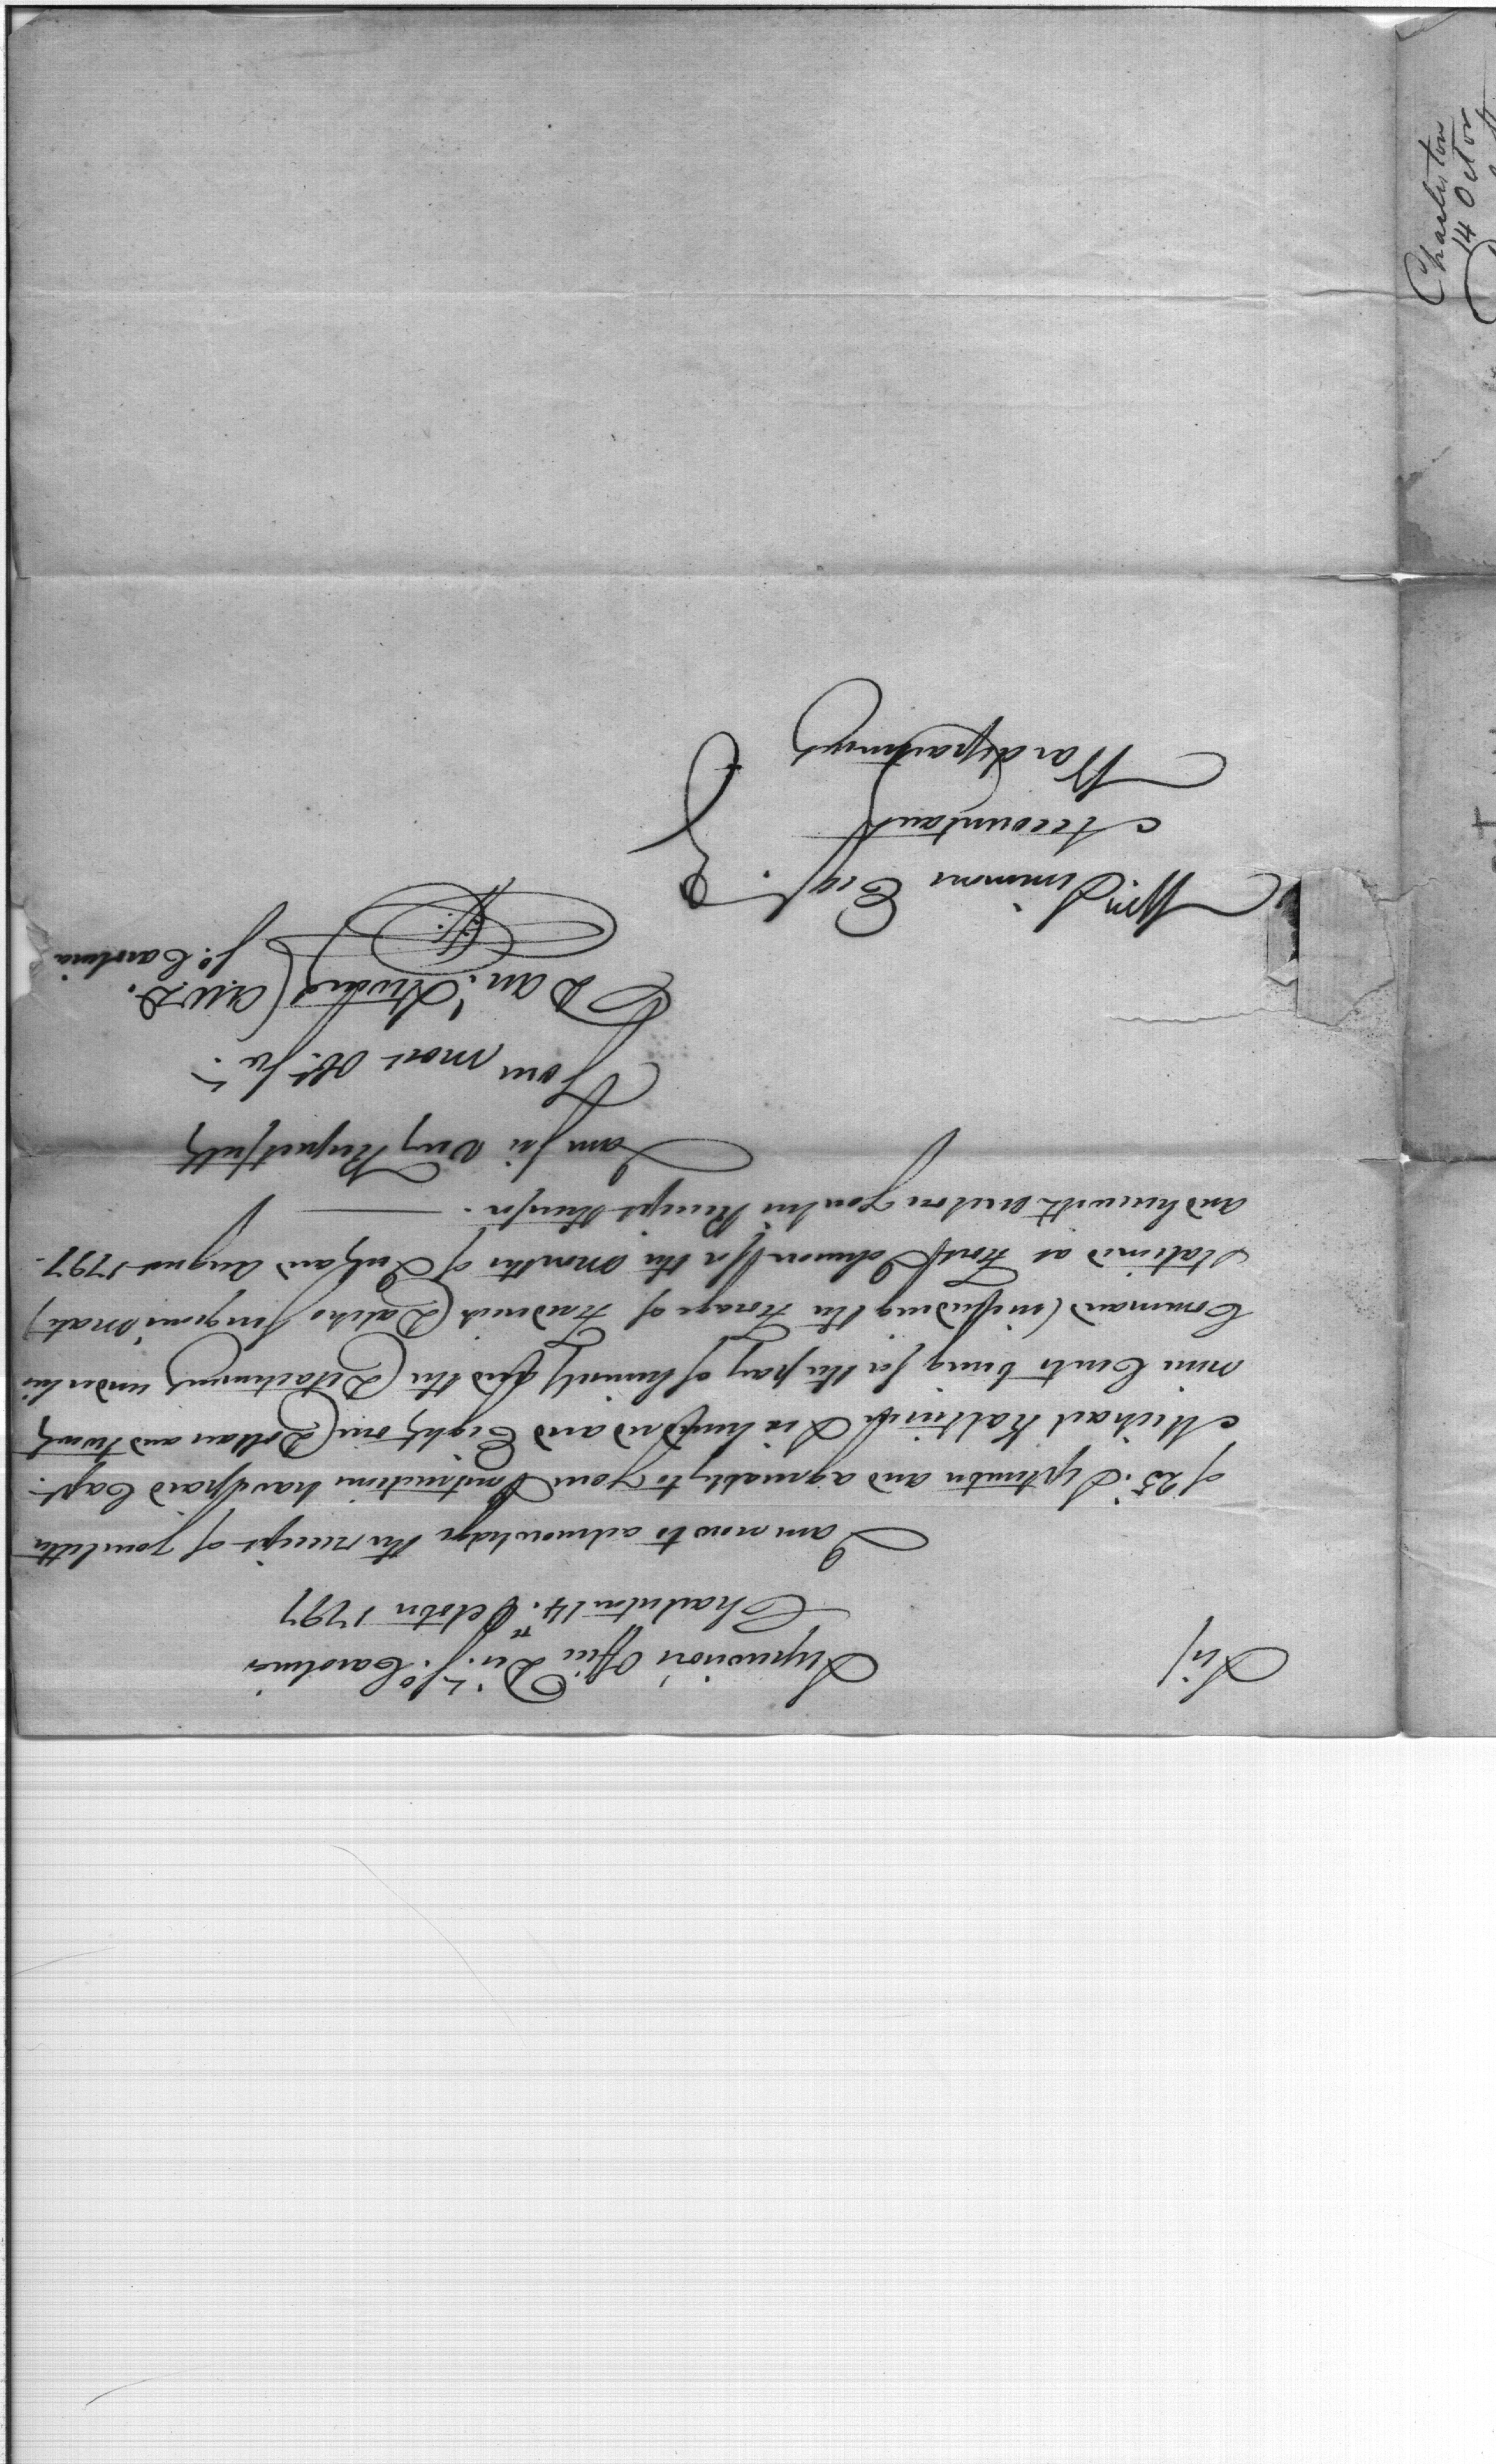 Supervisor's Office Dist. So. Carolina
Charleston 14th. October 1797
Sir/
I am now to acknowledge the receipt of your letter
of 25. September and agreeably to your Instructions have paid Capt.
Michael Kalteisen Six hundred and Eighty one Dollars and twenty
nine Cents being for the pay of himself and the Detachment under his
Command (including the Forage of Frederick Dalcho Surgeons Mate)
Stationed at Fort Johnson for the months of July and August 1797.
and herewith enclose you his Receipt therefor.
I am Sir Very Respectfully
Your most Obt. Sert.
Danl. Stevens A.W.D.
So. Carolina
Wm. Simmons Esqr.
Accountant
War department
Charleston
14 Octor